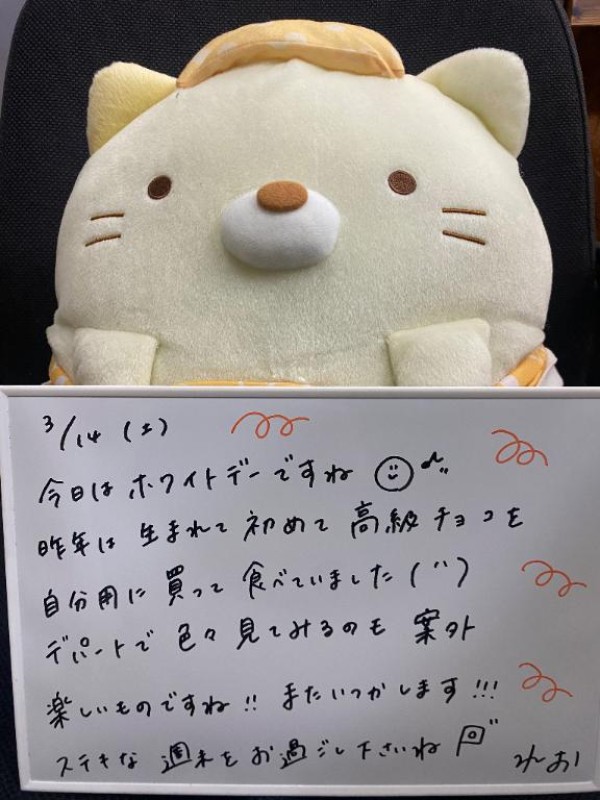 3/14 (土)
今日は ホワイトデーですね
昨年は 生まれて 初めて 高級チョコを
自分用に 買って 食べていました
デパートで 色々 見てみるのも 案外
楽しいものですね!! またいつかします!!!
ステキな 週末を お過ごし下さいね
みお